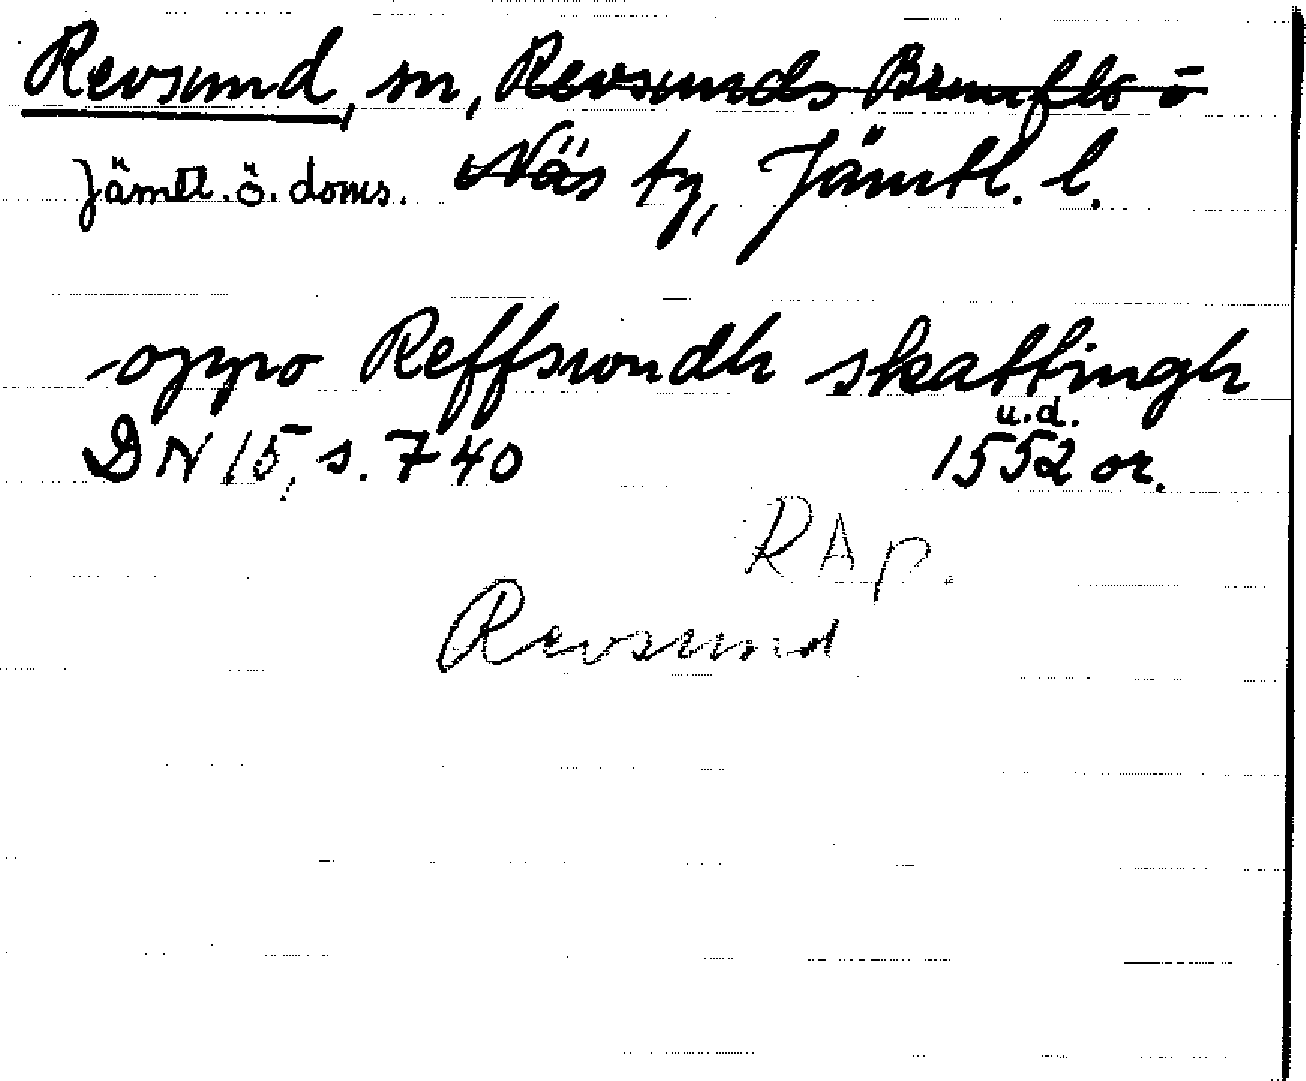 Revsund, sn, Revsunds Brunflo o
Jämtl. ö. doms. Näs tg, Jämtl. l.
oppo Reffswndh skattingh
u.d.
DN 15, s. 740 1552 or.
RAp.
Revsund